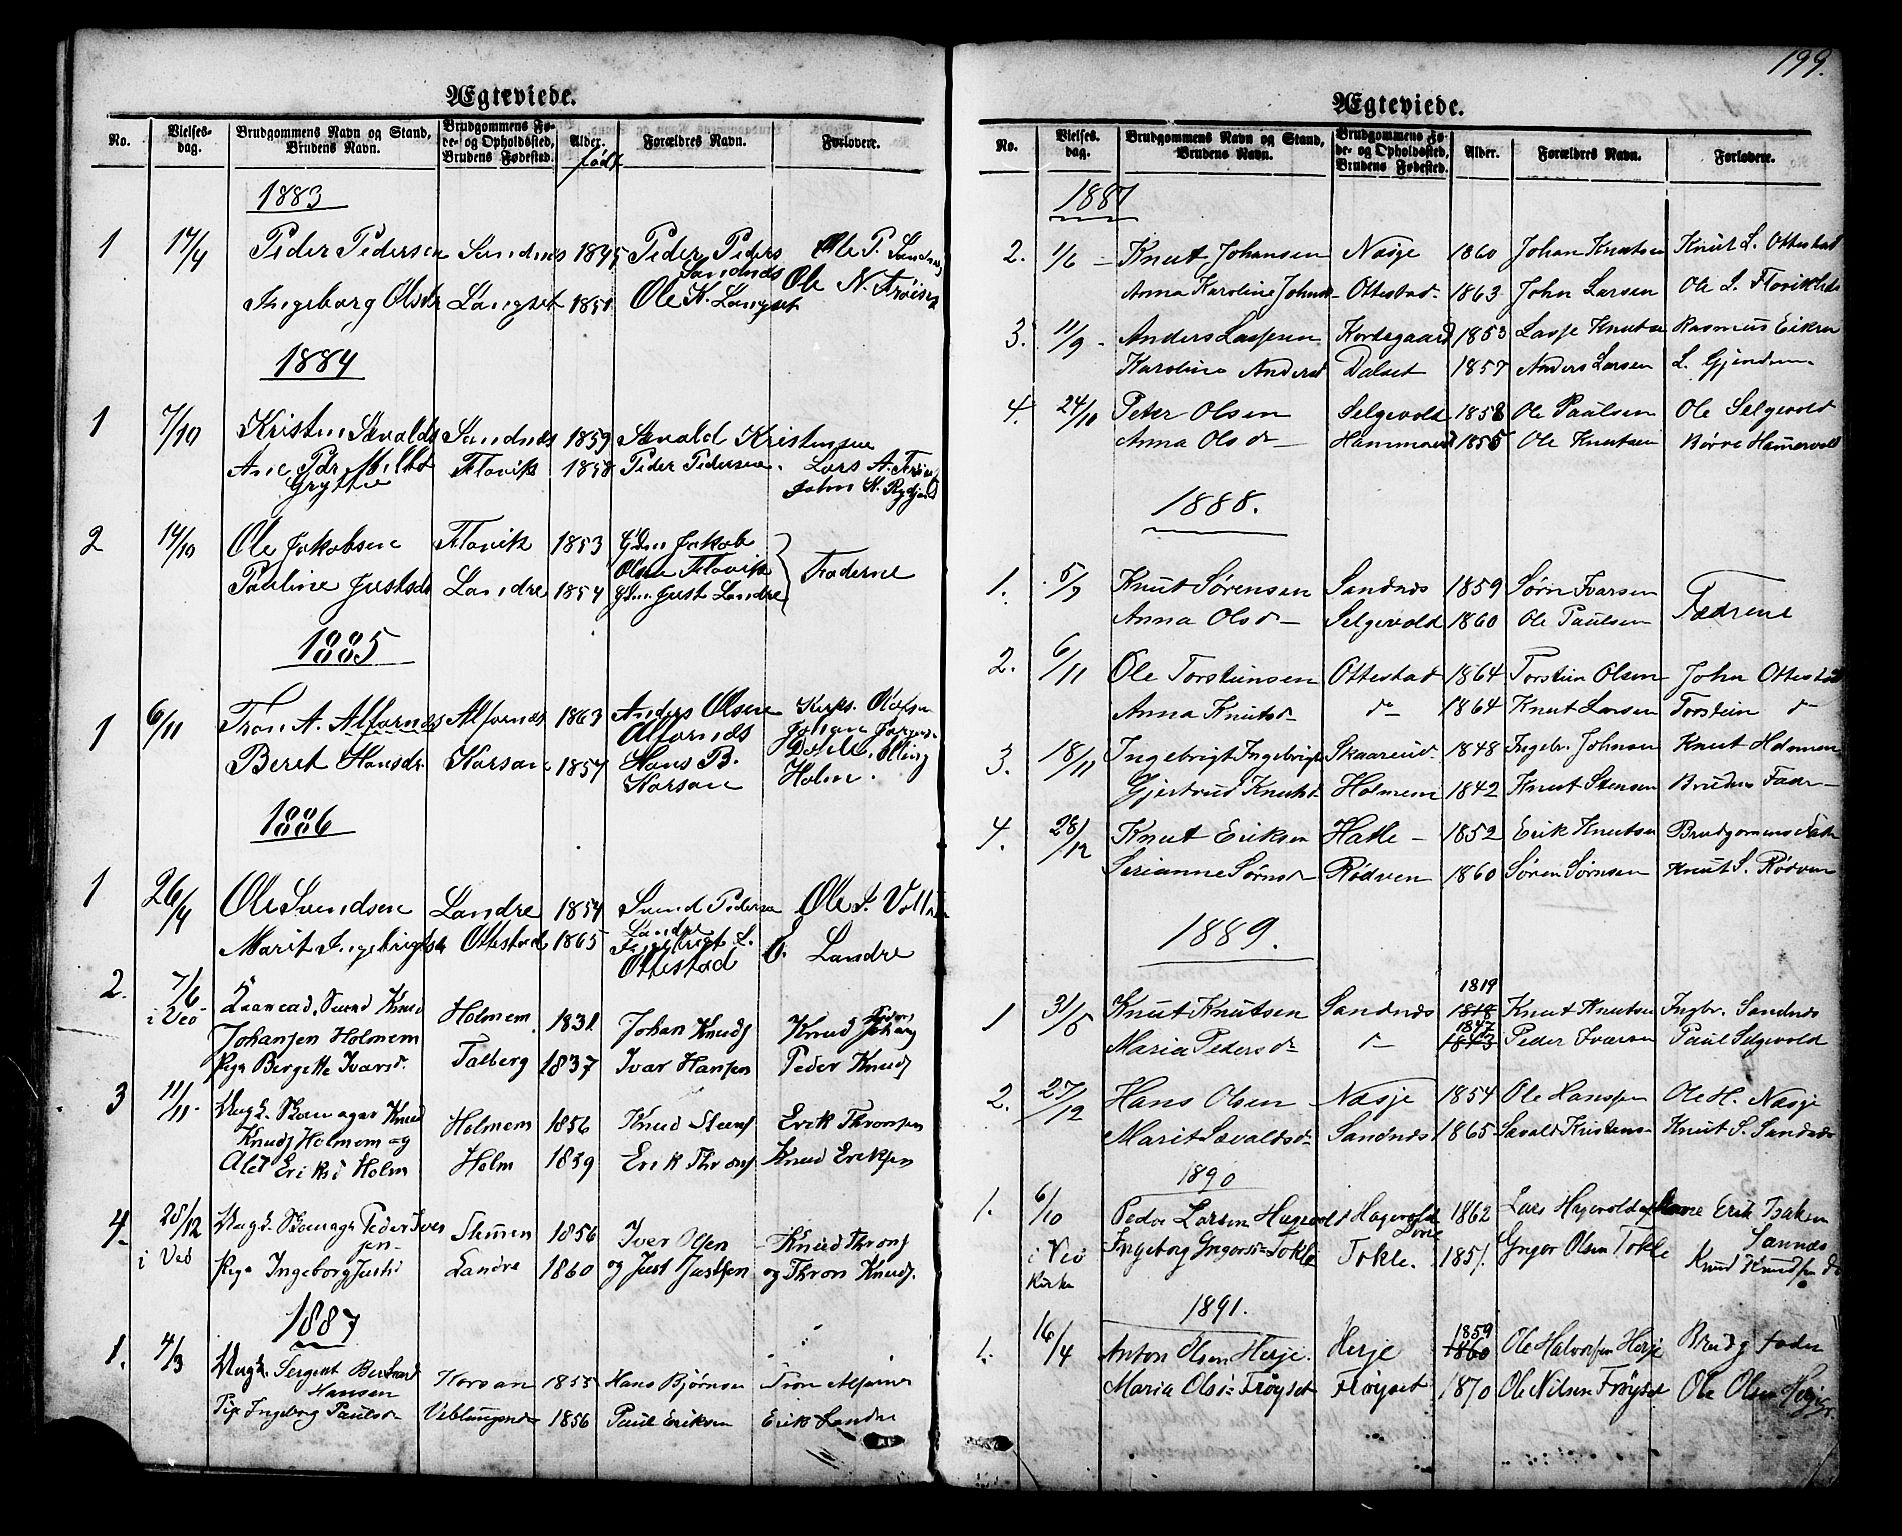 Ægteviede.
No. | Vielses-dag. | Brudgommens Navn og Stand, Brudens Navn. | Brudgommens Fø-de- og Opholdssted, Brudens Fødested. | Alder. født | Forældres Navn. | Forlovere.
1883
1 | 17/4 | Peder Pedersen | Sandnæs | 1845 | Peder Peders Sandnæs | Ole P. Sandnæs
Ingeborg Olsdr | Langset | 1851 | Ole K. Langset | Ole N. Frøiset
1884
1 | 7/10 | Kristen Sævalds | Sandnæs | 1859 | Sævald Kristensen
Ane Pdr | Flovik | 1858 | Peder Pedersen. | Lars A.
Grytte | John
2 | 14/10 | Ole Jakobsen | Flovik | 1853 | Gdm Jakob
Olsen Flovik | Fæderne
Pauline Justsdr | Landre | 1854 | Gdm. Just Landre
1885
1 | 6/11 | Tron A. Alfarnæs | Alfarnæs | 1863 | Anders Olsen | Kirks. Olafsen
Alfarnæs | Johan
Beret Hansdr. | Korsan | 1857 | Hans B. Korsan | Holm.
1886
1 | 26/4 | Ole Svendsen | Landre | 1854 | Svend Pedersen Landre | Ole S. Voll
Marit Ingebrigtsd | Ottestad | 1865 | Ingebrigt L. Ottestad | E. Landre
2. | 7/6 i Veø | Svend Knud
Johansen Holmem | Holmem | 1831 | Johan Knuds | Knud Johans
Pige Bergette Ivarsd. | Talberg | 1837 | Ivar Hansen | Peder Knuds
3 | 11/11 | Ungk. Skomager Knud
Knuds Holmem og | Holmem | 1856 | Knud Steens | Erik Thronsen
Alet Eriksd Holm | Holm | 1859 | Erik Throns | Knud Eriksen
4 | 28/12 | Ungk. Skomager Peder Iver
sen | Stemen | 1856 | Iver Olsen | Knud Throns
i Veø | Pige Ingeborg Justsd | Landre | 1860 | og Just Justsen | og Thron Knuds.
1887
1. | 4/3 | Ungk. Sergent Bernhard
Hansen | Korsan | 1855 | Hans Bjørnsen | Tron Alfarnes
Pige Ingeborg Paulsdr | Veblungsnæs | 1856 | Paul Eriksen | Erik Landre
199.
Ægteviede.
No. | Vielses-dag. | Brudgommens Navn og Stand, Brudens Navn. | Brudgommens Fø-de- og Opholdssted, Brudens Fødested. | Alder. | Forældres Navn. | Forlovere.
1887
2. | 1/6 | Knut Johansen | Nasje | 1860 | Johan Knutsen | Knut L. Ottestad
Anna Karoline Johnsd | Ottestad | 1863 | John Larsen | Ole L. Flovikhls
3. | 11/9 | Anders Lassesen | Kordsgaard | 1853 | Lasse Knutsen | Rasmus Eikren
Karoline Andersd | Dalset | 1857 | Anders Larsen | L. Gjendem
4. | 24/10 | Peter Olsen | Selgevold | 1858 | Ole Paulsen | Ole Selgevold
Anna Olsd | Hammervold | 1855 | Ole Knutsen | Børre Hamervold
1888.
1. | 5/7 | Knut Sørensen | Sandnæs | 1859 | Sørn Ivarsen | Fædrene
Anna Olsd | Selgevold | 1860 | Ole Paulsen
2. | 6/11 | Ole Torsteinsen | Ottestad | 1864 | Torstein Olsen | John Ottestad
Anna Knutsd | do | 1864 | Knut Larsen | Torstein do
3. | 18/11 | Ingebrigt Ingebrigts | Skaaren | 1848 | Ingebr. Johnsen | Knut Holmem
Gjertrud Knutsd | Holmem | 1842 | Knut Stensen | Brudens Fader
4. | 28/12 | Knut Eriksen | Hatle | 1852 | Erik Knutsen | Brudgommens Fader
Serianne Sørnsd | Rødven | 1860 | Søren Sørnsen | Knut S. Rødven
1889.
1 | 31/5 | Knut Knutsen | Sandnæs | 1819 1818 | Knut Knutsen | Ingbr. Sandnæs
Maria Pedersd | do | 1847 1843 | Peder Ivarsen | Paul Selgevold
2. | 27/12 | Hans Olsen | Nasje | 1854 | Ole Hanssen | Ole H. Nasje
Marit Sævaldsd | Sandnæs | 1865 | Sævald Kristens | Knut S. Sandnæs
1890
1. | 6/10 | Peder Larsen Hagevold | Hagevold | 1862 | Lars Hagevold | Erik Isaksen Sannæs
i Veø Kirke | Ingeborg Tokle | Tokle. | 1851. | Olsen Tokle | Knud Knudsen do
1891.
1. | 16/4 | Anton Olsen Herje. | Herje | 1859 1860 | Ole Halvorsen Herje | Brudg Fader
Maria Olsd Frøyset | Frøyset | 1870 | Ole Nilsen Frøyset | Ole Olsen Herje